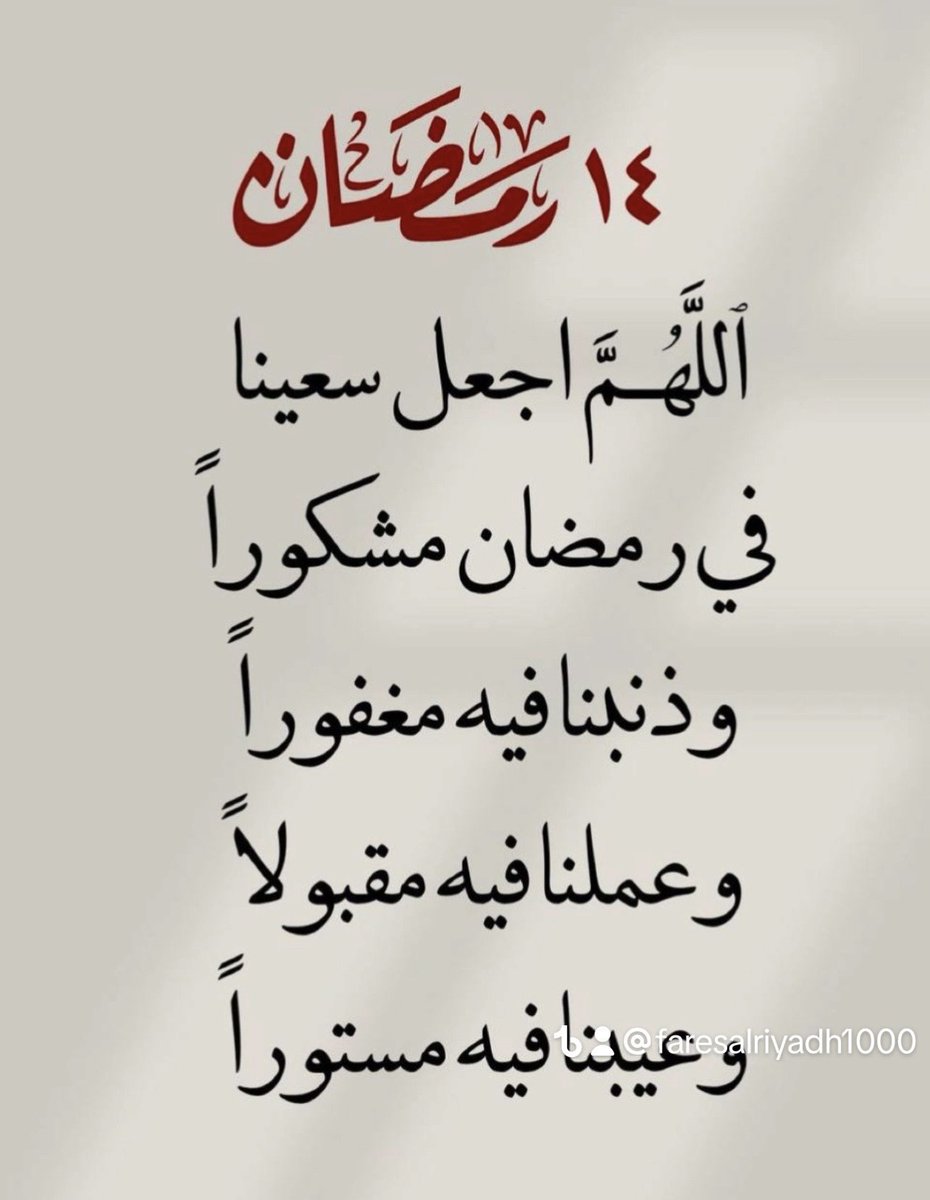 ١٤ رمضان
ٱللَّهُـمَّ اجعل سعينا
في رمضان مشكوراً
وذنبنا فيه مغفوراً
وعملنا فيه مقبولاً
وعيبنا فيه مستوراً
@faresalriyadh1000